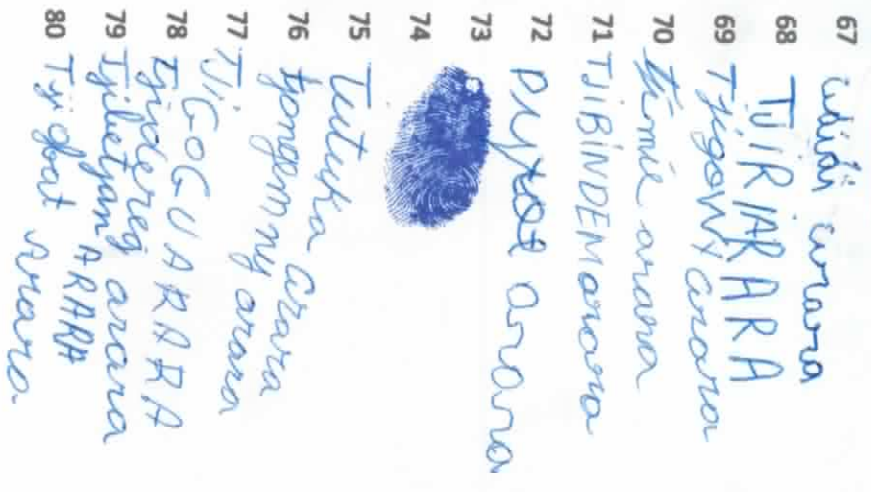 67 arara
68 TJIRIARARA
69 Tjigowy arara
70 arara
71 TJIBINDEM arara
72 arara
73
74
75 Tutuka arara
76 arara
77 TJIGOGUARARA
78 Tjidereg arara
79 Tjibetjam ARARA
80 Tjigbat Arara